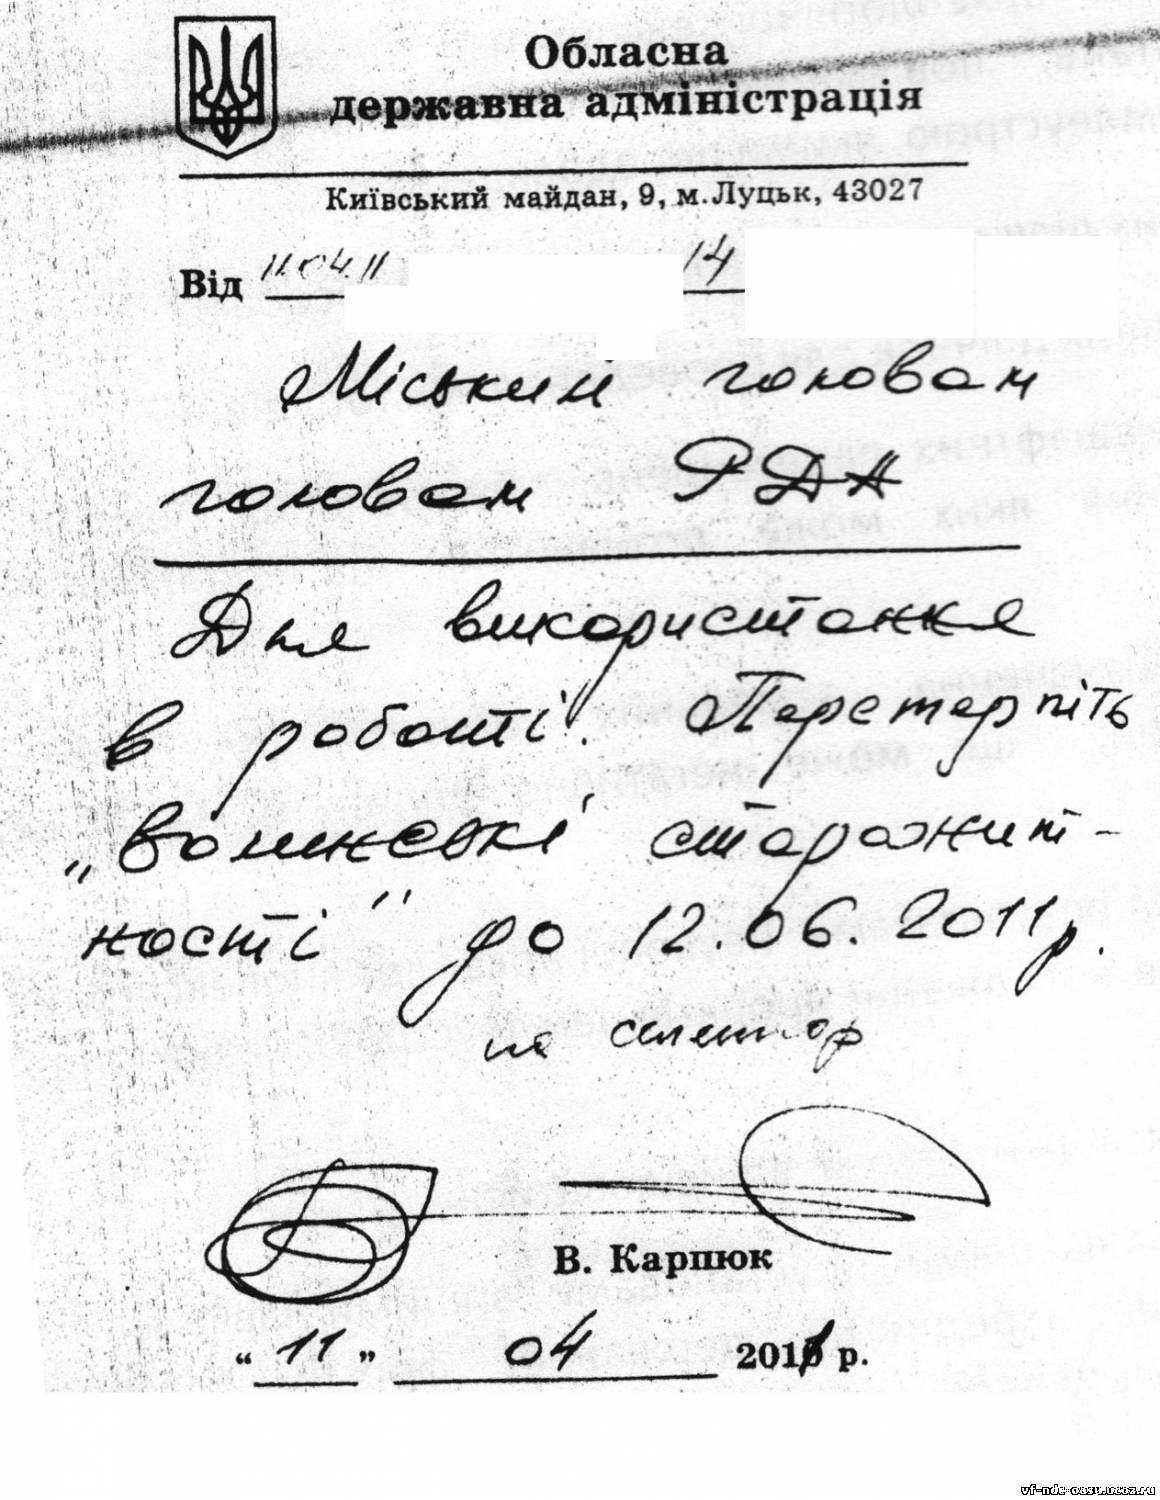 Обласна
державна адміністрація
Київський майдан, 9, м.Луцьк, 43027
Від 11.04.11 14
Міським головам
головам РДА
Для використання
в роботі. Перетерпіть
„Волинські старожит-
ності" до 12.06.2011р.
на селектор
В. Карпюк
“ 11 ” 04 2011 р.
vf-ndc-oasu.ucoz.ru